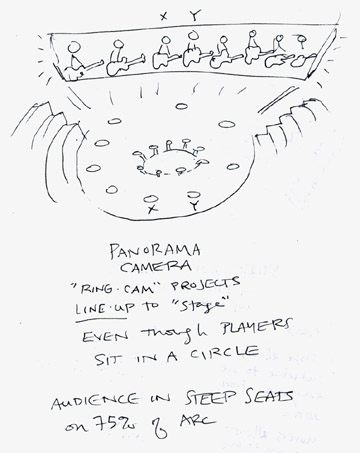 X Y
X Y
PANORAMA
CAMERA
"RING-CAM" PROJECTS
LINE-UP to "Stage"
EVEN though PLAYERS
SIT IN A CIRCLE
AUDIENCE IN STEEP SEATS
on 75% of ARC